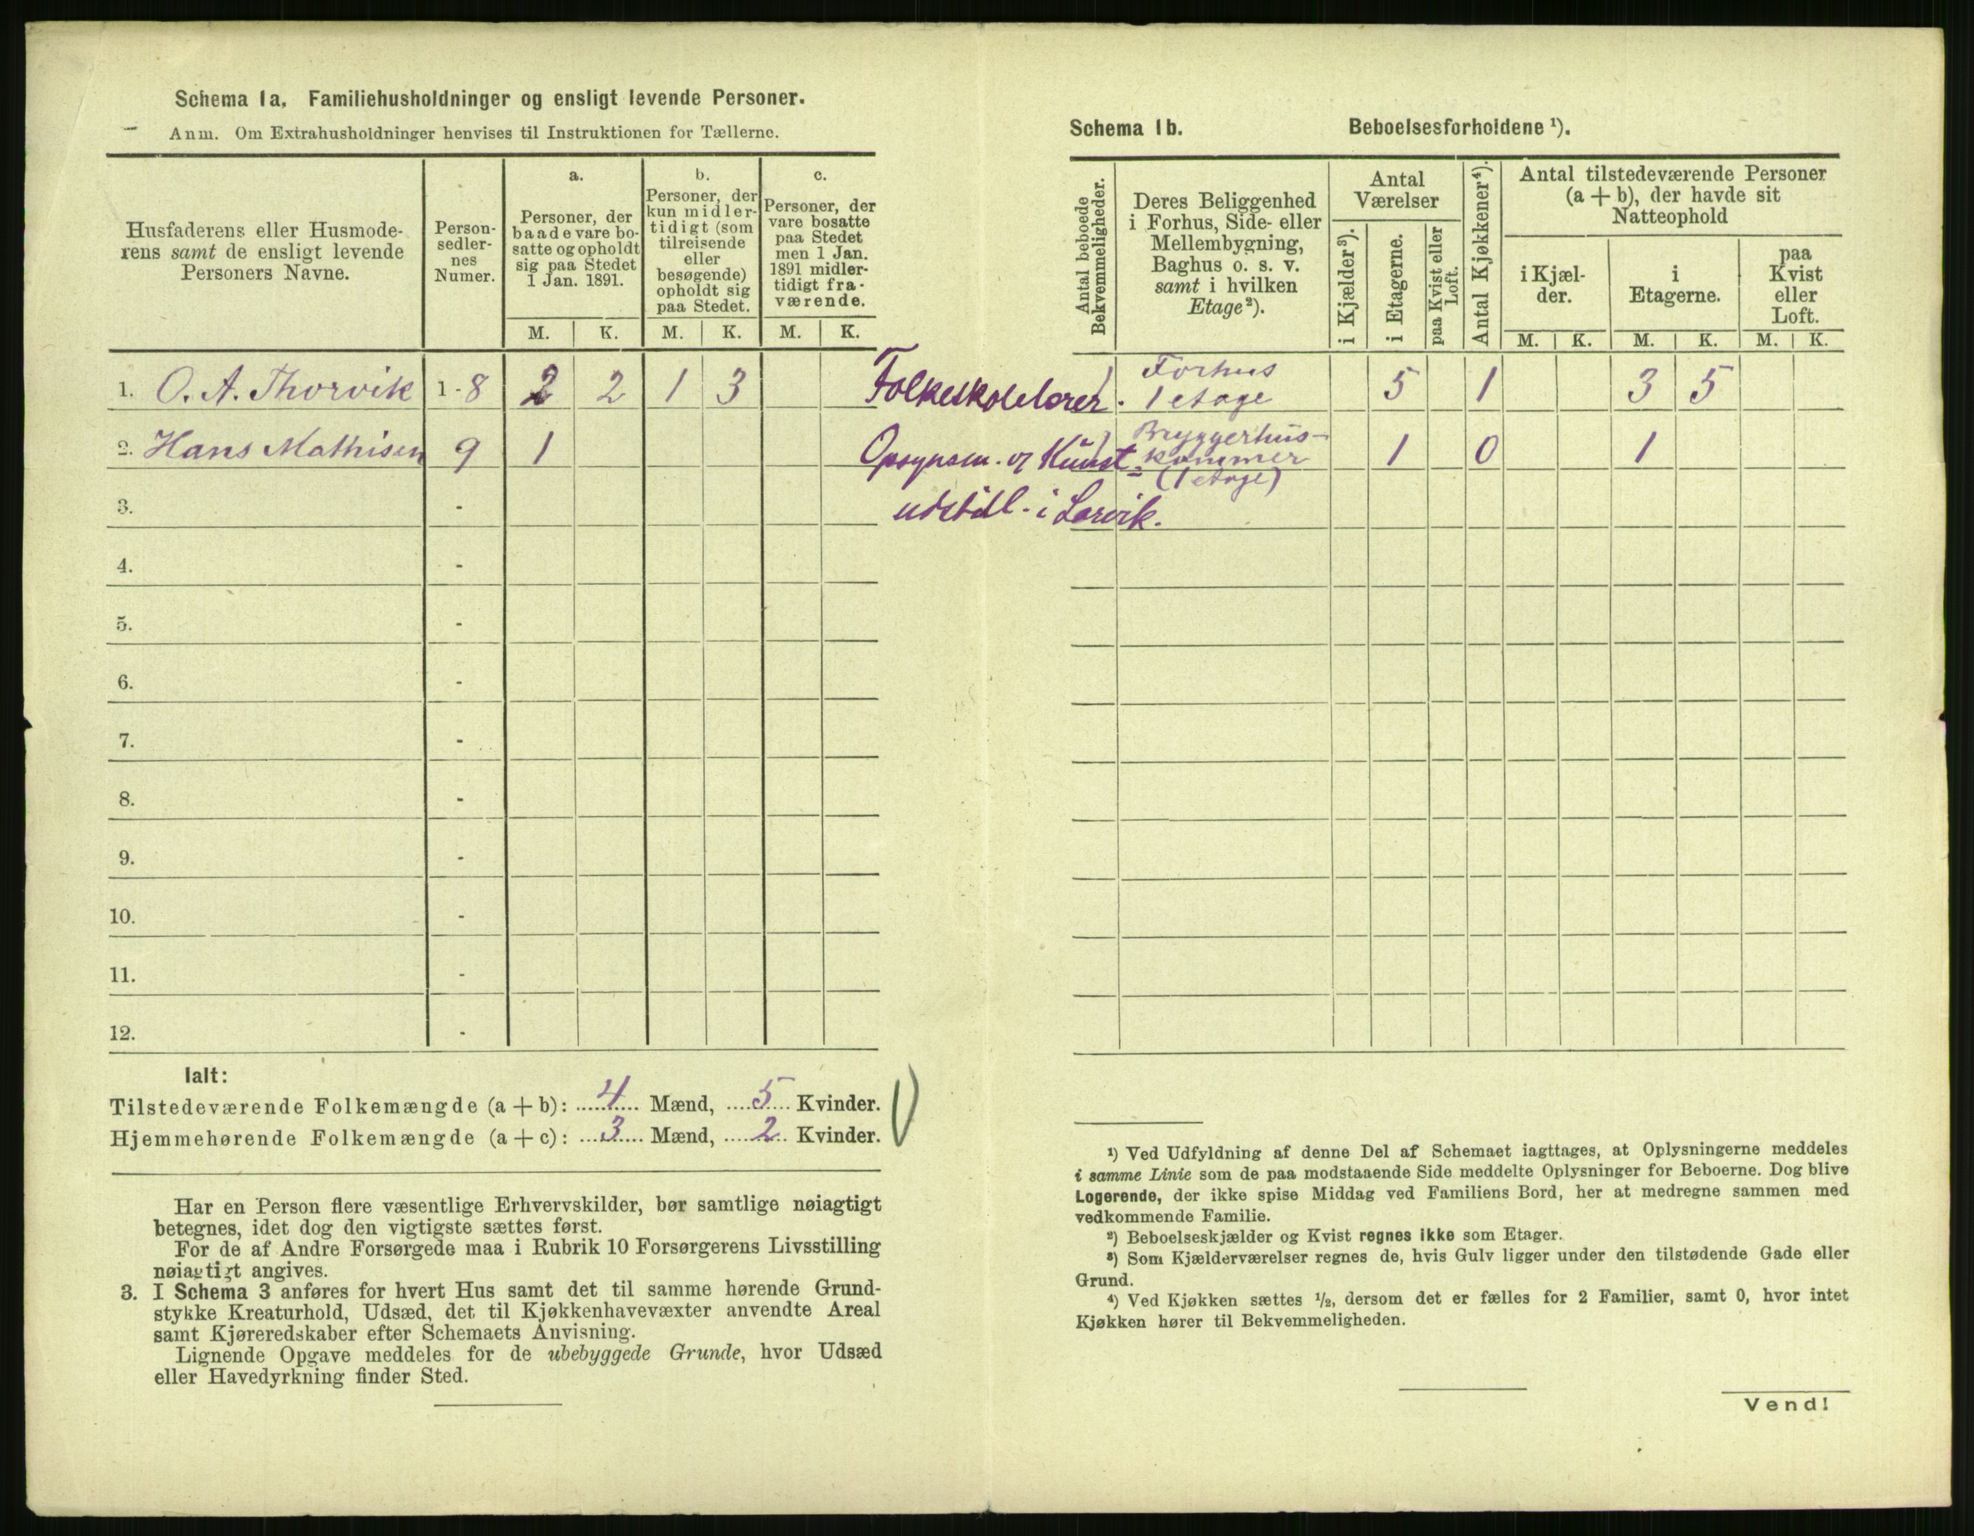 Schema 1a. Familiehusholdninger og ensligt levende Personer.
Anm. Om Extrahusholdninger henvises til Instruktionen for Tællerne.
Husfaderens eller Husmode-
rens samt de ensligt levende
Personers Navne.
Person-
sedler-
nes
Numer.
a.
Personer, der
baade vare bo-
satte og opholdt
sig paa Stedet
1 Jan. 1891.
b.
Personer, der
kun midler-
tidigt (som
tilreisende
eller
besøgende)
opholdt sig
paa Stedet.
c.
Personer, der
vare bosatte
paa Stedet
men 1 Jan.
1891 midler-
tidigt fra-
værende.
M. K. M. K. M. K.
1. O. A. Thorvik 1-8 2 2 1 3
2. Hans Mathisen 9 1
3. -
4. -
5. -
6. -
7. -
8. -
9. -
10. -
11. -
12. -
Folkeskolelærer.
Opsynsm. v/ Kunst-
udstill. i Larvik.
Ialt:
Tilstedeværende Folkemængde (a + b): 4 Mænd, 5 Kvinder.
Hjemmehørende Folkemængde (a + c): 3 Mænd, 2 Kvinder.
Har en Person flere væsentlige Erhvervskilder, bør samtlige nøiagtigt
betegnes, idet dog den vigtigste sættes først.
For de af Andre Forsørgede maa i Rubrik 10 Forsørgerens Livsstilling
nøiagtigt angives.
3. I Schema 3 anføres for hvert Hus samt det til samme hørende Grund-
stykke Kreaturhold, Udsæd, det til Kjøkkenhavevæxter anvendte Areal
samt Kjøreredskaber efter Schemaets Anvisning.
Lignende Opgave meddeles for de ubebyggede Grunde, hvor Udsæd
eller Havedyrkning finder Sted.
Schema 1b. Beboelsesforholdene ¹).
Antal beboede
Bekvemmeligheder.
Deres Beliggenhed
i Forhus, Side- eller
Mellembygning,
Baghus o. s. v.
samt i hvilken
Etage²).
Antal
Værelser
i Kjælder³).
i Etagerne.
paa Kvist eller
Loft.
Antal Kjøkkener⁴).
Antal tilstedeværende Personer
(a + b), der havde sit
Natteophold
i Kjæl-
der.
i
Etagerne.
paa
Kvist
eller
Loft.
M. K. M. K. M. K.
1 Forhus
1 etage 5 1 3 5
1 Bryggerhus-
kammer 1 0 1
(1 etage)
¹) Ved Udfyldning af denne Del af Schemaet iagttages, at Oplysningerne meddeles
i samme Linie som de paa modstaaende Side meddelte Oplysninger for Beboerne. Dog blive
Logerende, der ikke spise Middag ved Familiens Bord, her at medregne sammen med
vedkommende Familie.
²) Beboelseskjælder og Kvist regnes ikke som Etager.
³) Som Kjælderværelser regnes de, hvis Gulv ligger under den tilstødende Gade eller
Grund.
⁴) Ved Kjøkken sættes ½, dersom det er fælles for 2 Familier, samt 0, hvor intet
Kjøkken hører til Bekvemmeligheden.
Vend!